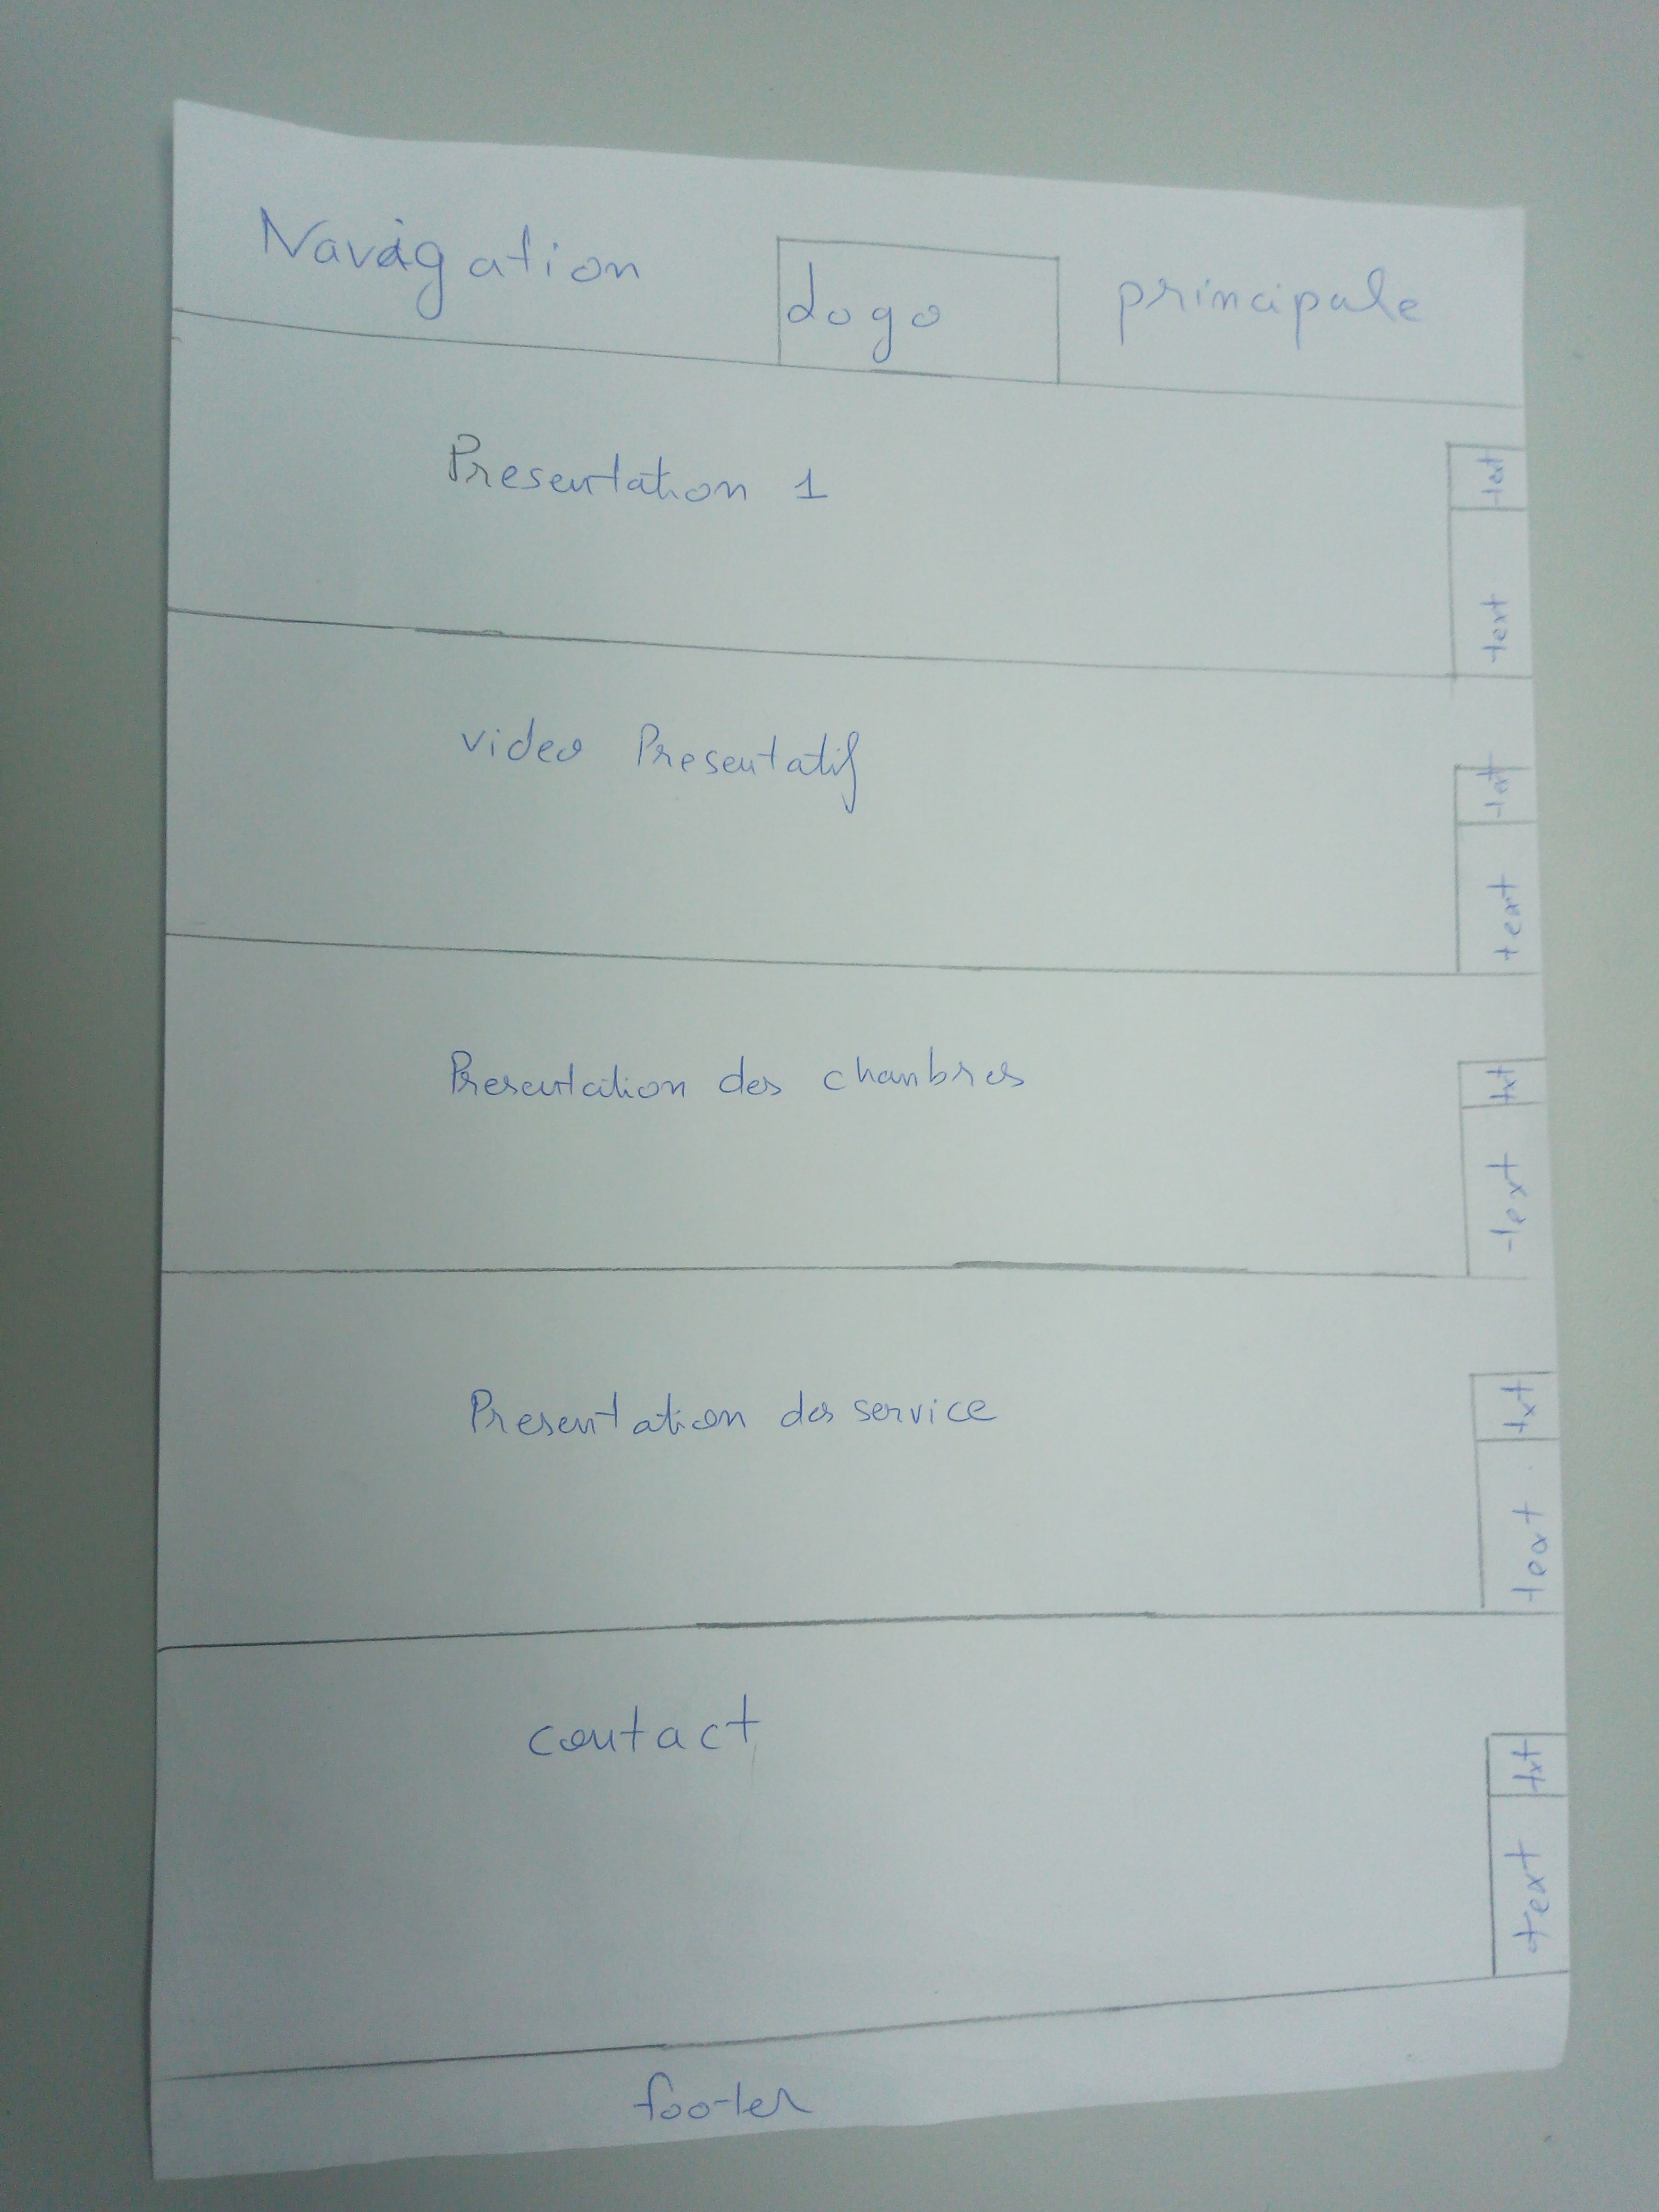 Navigation Logo principale
Presentation 1
text
text
video Presentatif
text
text
Presentation des chambres
txt
text
Presentation des service
txt
text
contact
txt
text
footer